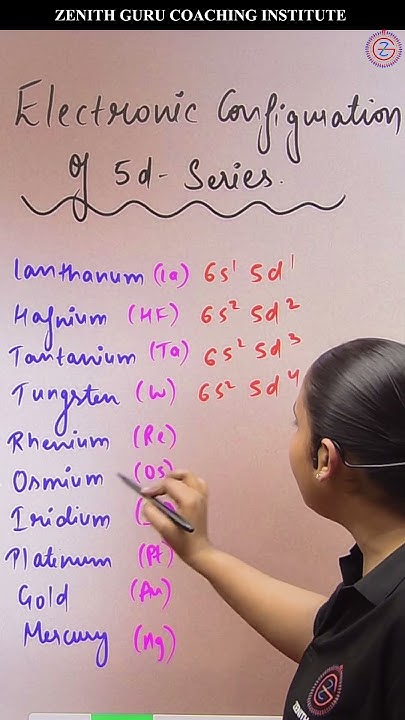 ZENITH GURU COACHING INSTITUTE
Electronic Configuration
of 5d- Series.
lanthanum (la) 6s¹ 5d¹
Hafnium (HF) 6s² 5d²
Tantanium (Ta) 6s² 5d³
Tungsten (W) 6s² 5d⁴
Rhenium (Re)
Osmium (Os)
Iridium
Platinum (Pt)
Gold (Au)
Mercury (Hg)